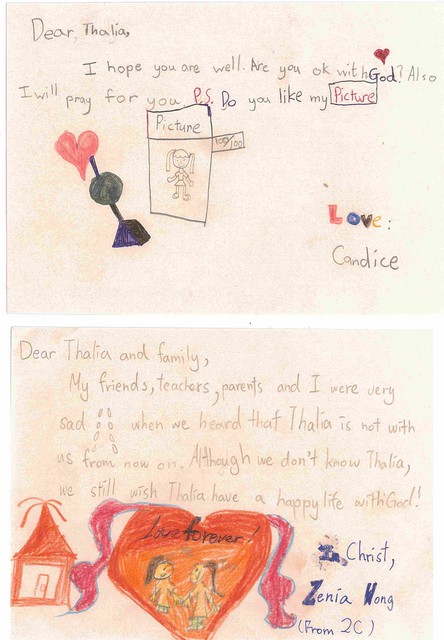 Dear, Thalia,
I hope you are well. Are you ok with God? Also
I will pray for you. P.S. Do you like my Picture
Picture
100/100
Love:
Candice
Dear Thalia and family,
My friends, teachers, parents and I were very
sad when we heard that Thalia is not with
us from now on. Although we don't know Thalia,
we still wish Thalia have a happy life with God!
Love forever!
In Christ,
Zenia Wong
(From 2C)